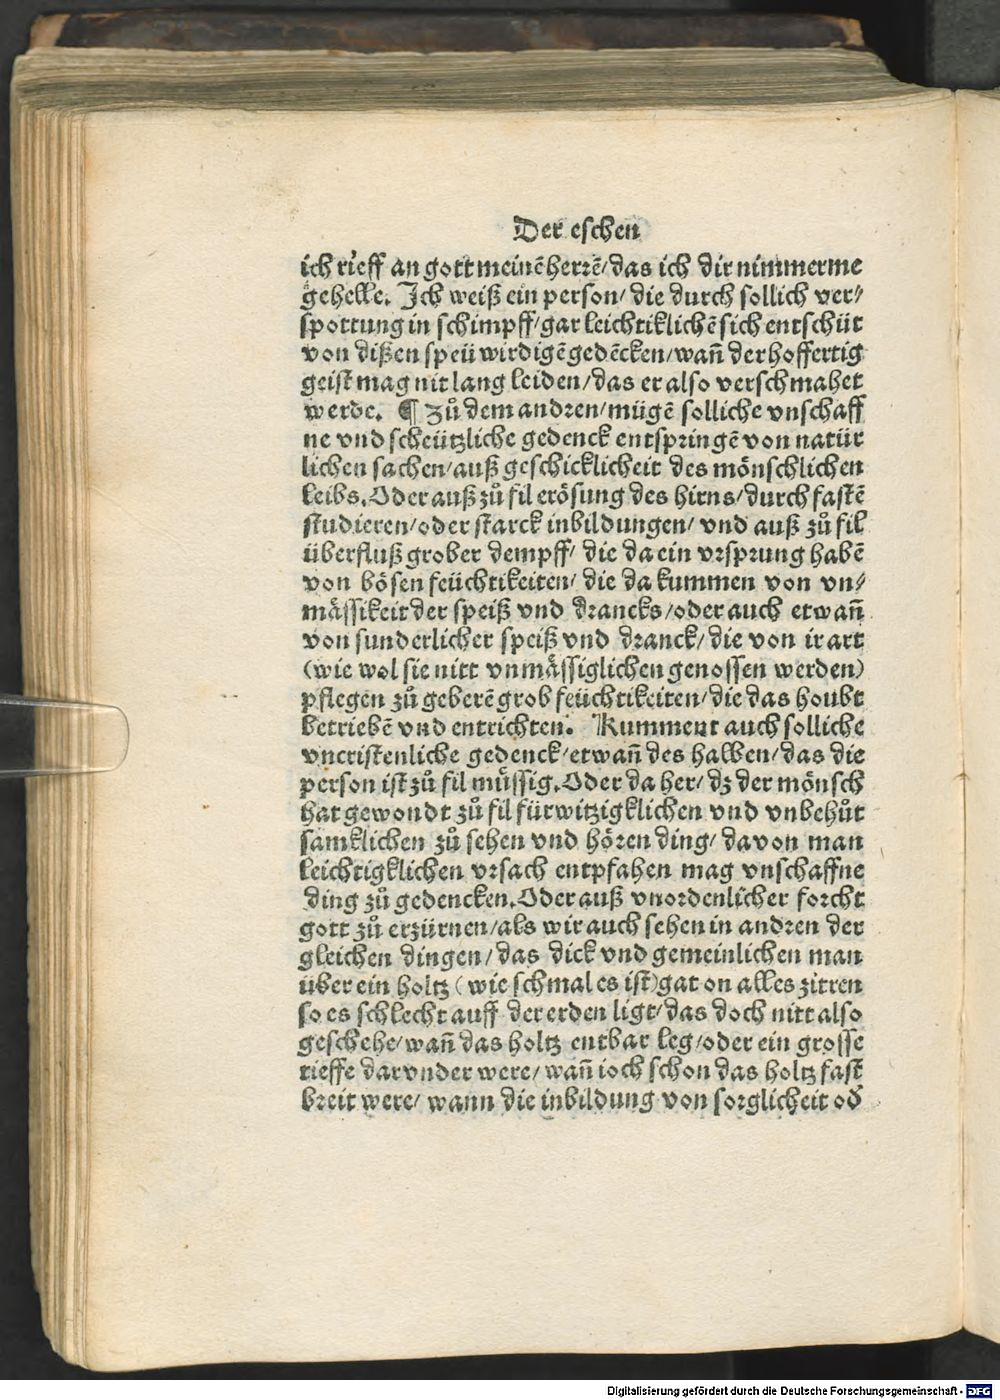 Der eschen
ich rieff an gott meinē herrē/das ich dir nimmerme
gehelle. Ich weiß ein person/ die durch sollich ver/
spottung in schimpff/gar leichtiklichē sich entschüt
von dißen speü wirdigē gedēcken/wañ der hoffertig
geist mag nit lang leiden/das er also verschmahet
werde. ¶ Zů dem andren/mügē solliche vnschaff
ne vnd scheützliche gedenck entspringē von natür
lichen sachen/auß geschicklicheit des mönschlichen
leibs. Oder auß zů fil erösung des hirns/durch fastē
studieren/oder starck inbildungen/ vnd auß zů fil
überfluß grober dempff/ die da ein vrsprung habē
von bösen feüchtikeiten/ die da kummen von vn/
mässikeit der speiß vnd drancks/oder auch etwañ
von sunderlicher speiß vnd dranck/die von ir art
(wie wol sie nitt vnmässiglichen genossen werden)
pflegen zů geberē grob feüchtikeiten/die das houbt
betriebē vnd entrichten. Kumment auch solliche
vncristenliche gedenck/etwañ des halben/das die
person ist zů fil müssig. Oder da her/ dz der mönsch
hat gewondt zů fil fürwitzigklichen vnd vnbehůt
samklichen zů sehen vnd hören ding/ davon man
leichtigklichen vrsach entpfahen mag vnschaffne
ding zů gedencken. Oder auß vnordenlicher forcht
gott zů erzürnen/als wir auch sehen in andren der
gleichen dingen/das dick vnd gemeinlichen man
über ein holtz (wie schmal es ist)gat on alles zitren
so es schlecht auff der erden ligt/das doch nitt also
geschehe/wañ das holtz entbar leg/oder ein grosse
tieffe darvnder were/wañ ioch schon das holtz fast
breit were/ wann die inbildung von sorglicheit od̄
Digitalisierung gefördert durch die Deutsche Forschungsgemeinschaft - DFG